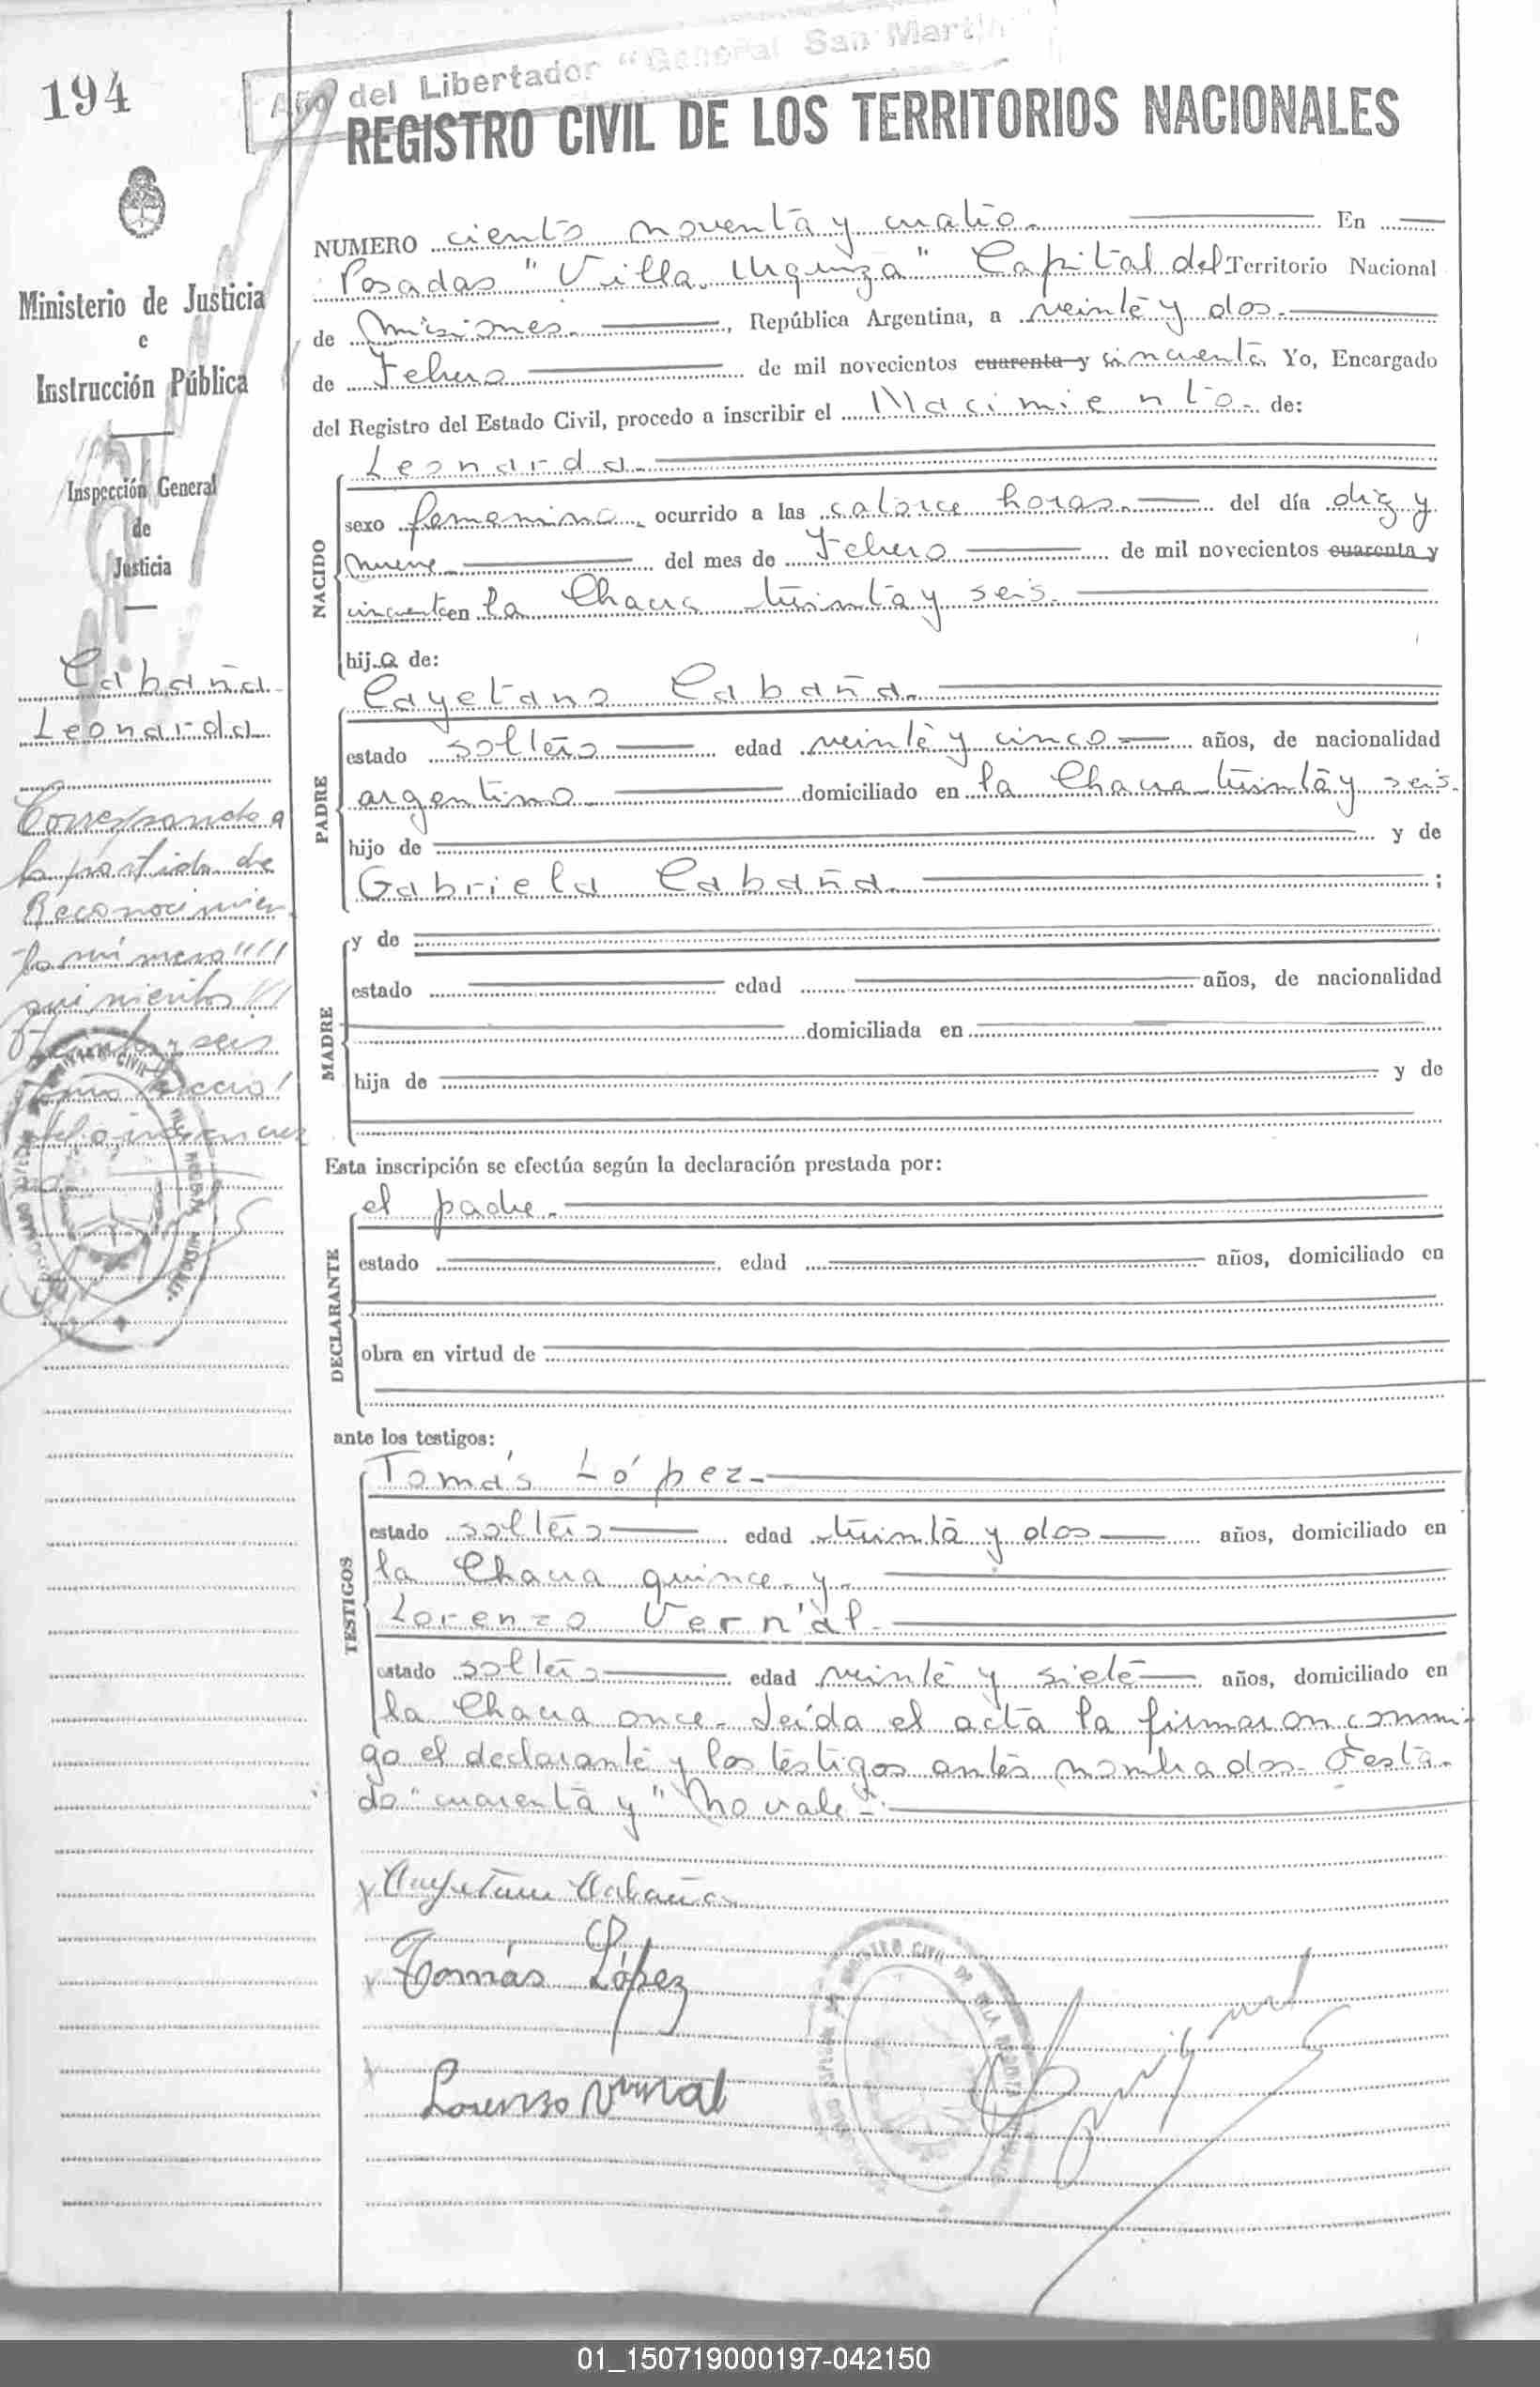 194
Año del Libertador "General San Martín"
REGISTRO CIVIL DE LOS TERRITORIOS NACIONALES
NUMERO ciento noventa y cuatro. En
Posadas "Villa Urquiza" Capital del Territorio Nacional
de Misiones, República Argentina, a veinte y dos.
de Febrero de mil novecientos cuarenta y cincuenta Yo, Encargado
del Registro del Estado Civil, procedo a inscribir el Nacimiento. de:
Ministerio de Justicia
e
Instrucción Pública
Inspección General
de
Justicia
Cabaña
Leonarda
Corresponde a
la partida de
Reconocimien
to número
quinientos
treinta y seis
tomo
NACIDO
Leonarda.
sexo femenino, ocurrido a las catorce horas. del día diez y
nueve del mes de Febrero de mil novecientos cuarenta y
cincuenta en la Chacra treinta y seis.
hija de:
PADRE
Cayetano Cabaña.
estado soltero edad veinte y cinco años, de nacionalidad
argentino domiciliado en la Chacra treinta y seis.
hijo de y de
Gabriela Cabaña. ;
MADRE
y de
estado edad años, de nacionalidad
domiciliada en
hija de y de
Esta inscripción se efectúa según la declaración prestada por:
DECLARANTE
el padre.
estado edad años, domiciliado en
obra en virtud de
ante los testigos:
TESTIGOS
Tomás López.
estado soltero edad treinta y dos años, domiciliado en
la Chacra quince y
Lorenzo Vernal.
estado soltero edad veinte y siete años, domiciliado en
la Chacra once. Leída el acta la firmaron conmi-
go el declarante y los testigos antes nombrados. Testa-
do "cuarenta y" No vale.
Cayetano Cabaña
Tomás López
Lorenzo Vernal
01_150719000197-042150